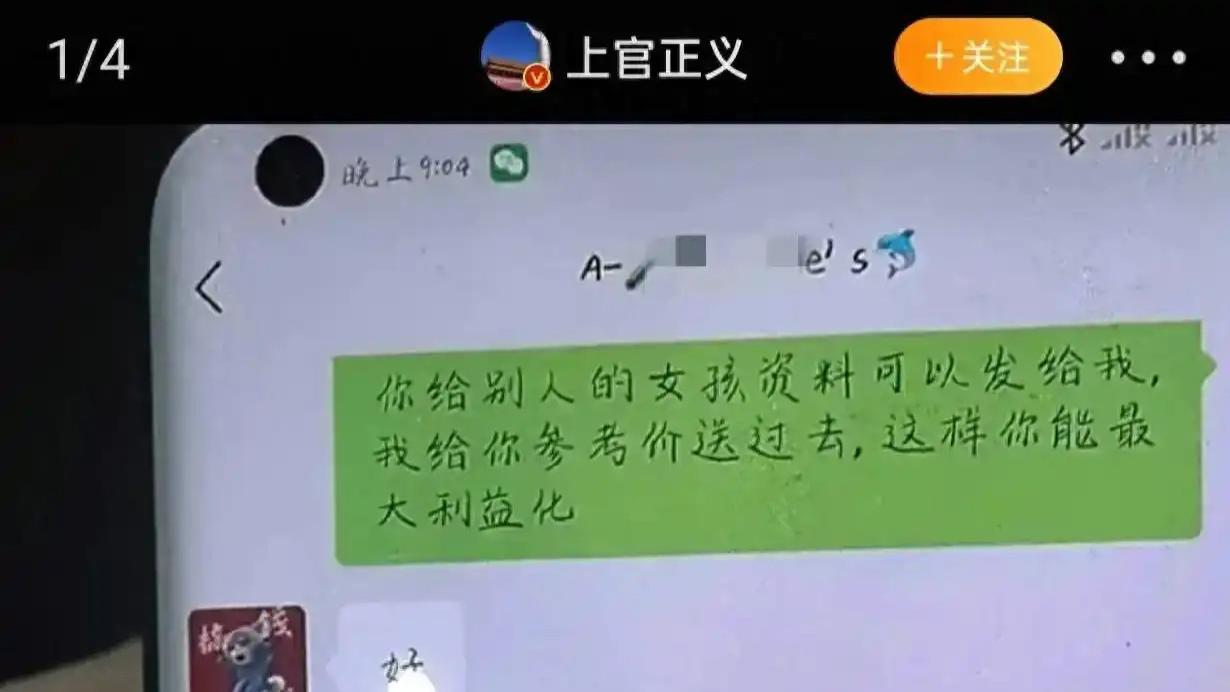 1/4 上官正义 +关注
晚上9:04
A- e's
你给别人的女孩资料可以发给我,
我给你参考价送过去,这样你能最
大利益化
搞钱
好